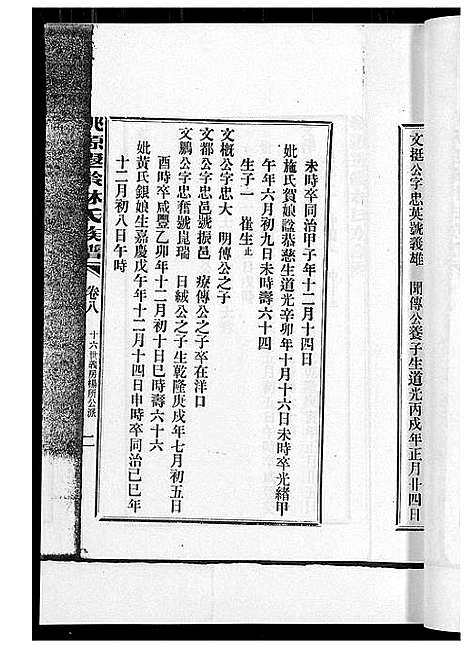 文挺公字忠英號義雄 開傳公養子生道光丙戌年正月廿四日
未時卒同治甲子年十二月十四日
妣施氏賀娘諡恭慈生道光辛卯年十月十六日未時卒光緒甲
午年六月初九日未時壽六十四
生子一 崔生止
文概公字忠大 明傳公之子
文都公字忠邑號振邑 療傳公之子卒在洋口
文鵬公字忠奮號崑瑞 日絨公之子生乾隆庚戌年七月初五日
酉時卒咸豐乙卯年十二月初十日巳時壽六十六
妣黃氏銀娘生嘉慶戊午年十二月十四日申時卒同治己巳年
十二月初八日午時
林氏族譜 卷八 十六世義房楊所公派 二